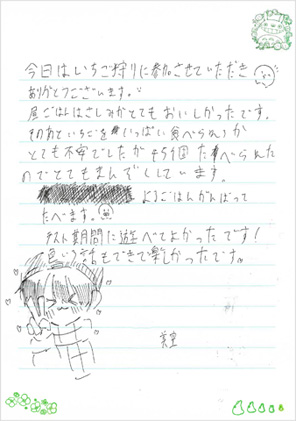 今日はいちご狩りに参加させていただき
ありがとうございます。
昼ごはんはさしみがとてもおいしかったです。
初めていちごをいっぱい食べられるか
とても不安でしたが45個食べられた
のでとてもまんぞくしています。
よるごはんがんばって
たべます。
テスト期間に遊べてよかったです!
良い 話もできて楽しかったです。